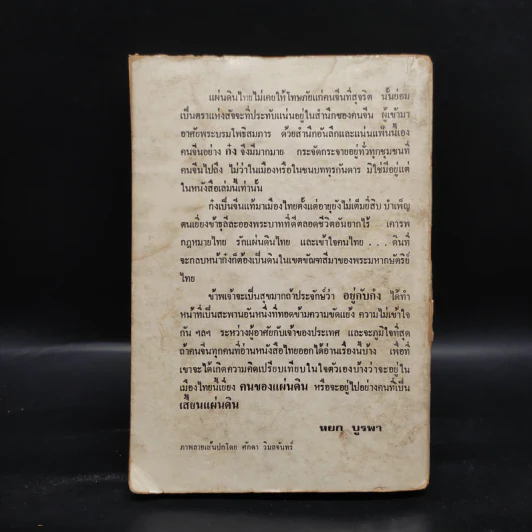 แผ่นดินไทยไม่เคยให้โทษภัยแก่คนจีนที่สุจริต นั้นย่อม
เป็นตราแห่งสัจจะที่ประทับแน่นอยู่ในสำนึกของคนจีน ผู้เข้ามา
อาศัยพระบรมโพธิสมภาร ด้วยสำนึกอันลึกและแน่นแฟ้นนี้เอง
คนจีนอย่าง ก๋ง จึงมีมากมาย กระจัดกระจายอยู่ทั่วทุกชุมชนที่
คนจีนไปถึง ไม่ว่าในเมืองหรือในชนบททุรกันดาร มิใช่มีอยู่แต่
ในหนังสือเล่มนี้เท่านั้น
ก๋งเป็นจีนแท้มาเมืองไทยตั้งแต่อายุยังไม่เต็มยี่สิบ บำเพ็ญ
ตนเยี่ยงข้าธุลีละอองพระบาทที่ดีตลอดชีวิตอันยากไร้ เคารพ
กฎหมายไทย รักแผ่นดินไทย และเข้าใจคนไทย . . . ดินที่
จะกลบหน้าก๋งก็ต้องเป็นดินในเขตขัณฑสีมาของพระมหากษัตริย์
ไทย
ข้าพเจ้าจะเป็นสุขมากถ้าประจักษ์ว่า อยู่กับก๋ง ได้ทำ
หน้าที่เป็นสะพานอันหนึ่งที่ทอดข้ามความขัดแย้ง ความไม่เข้าใจ
กัน ฯลฯ ระหว่างผู้อาศัยกับเจ้าของประเทศ และจะภูมิใจที่สุด
ถ้าคนจีนทุกคนที่อ่านหนังสือไทยออกได้อ่านเรื่องนี้บ้าง เพื่อที่
เขาจะได้เกิดความคิดเปรียบเทียบในใจตัวเองบ้างว่าจะอยู่ใน
เมืองไทยนี้เยี่ยง คนของแผ่นดิน หรือจะอยู่ไปอย่างคนที่เป็น
เสี้ยนแผ่นดิน
หยก บูรพา
ภาพลายเส้นปกโดย ศักดา วิมลจันทร์